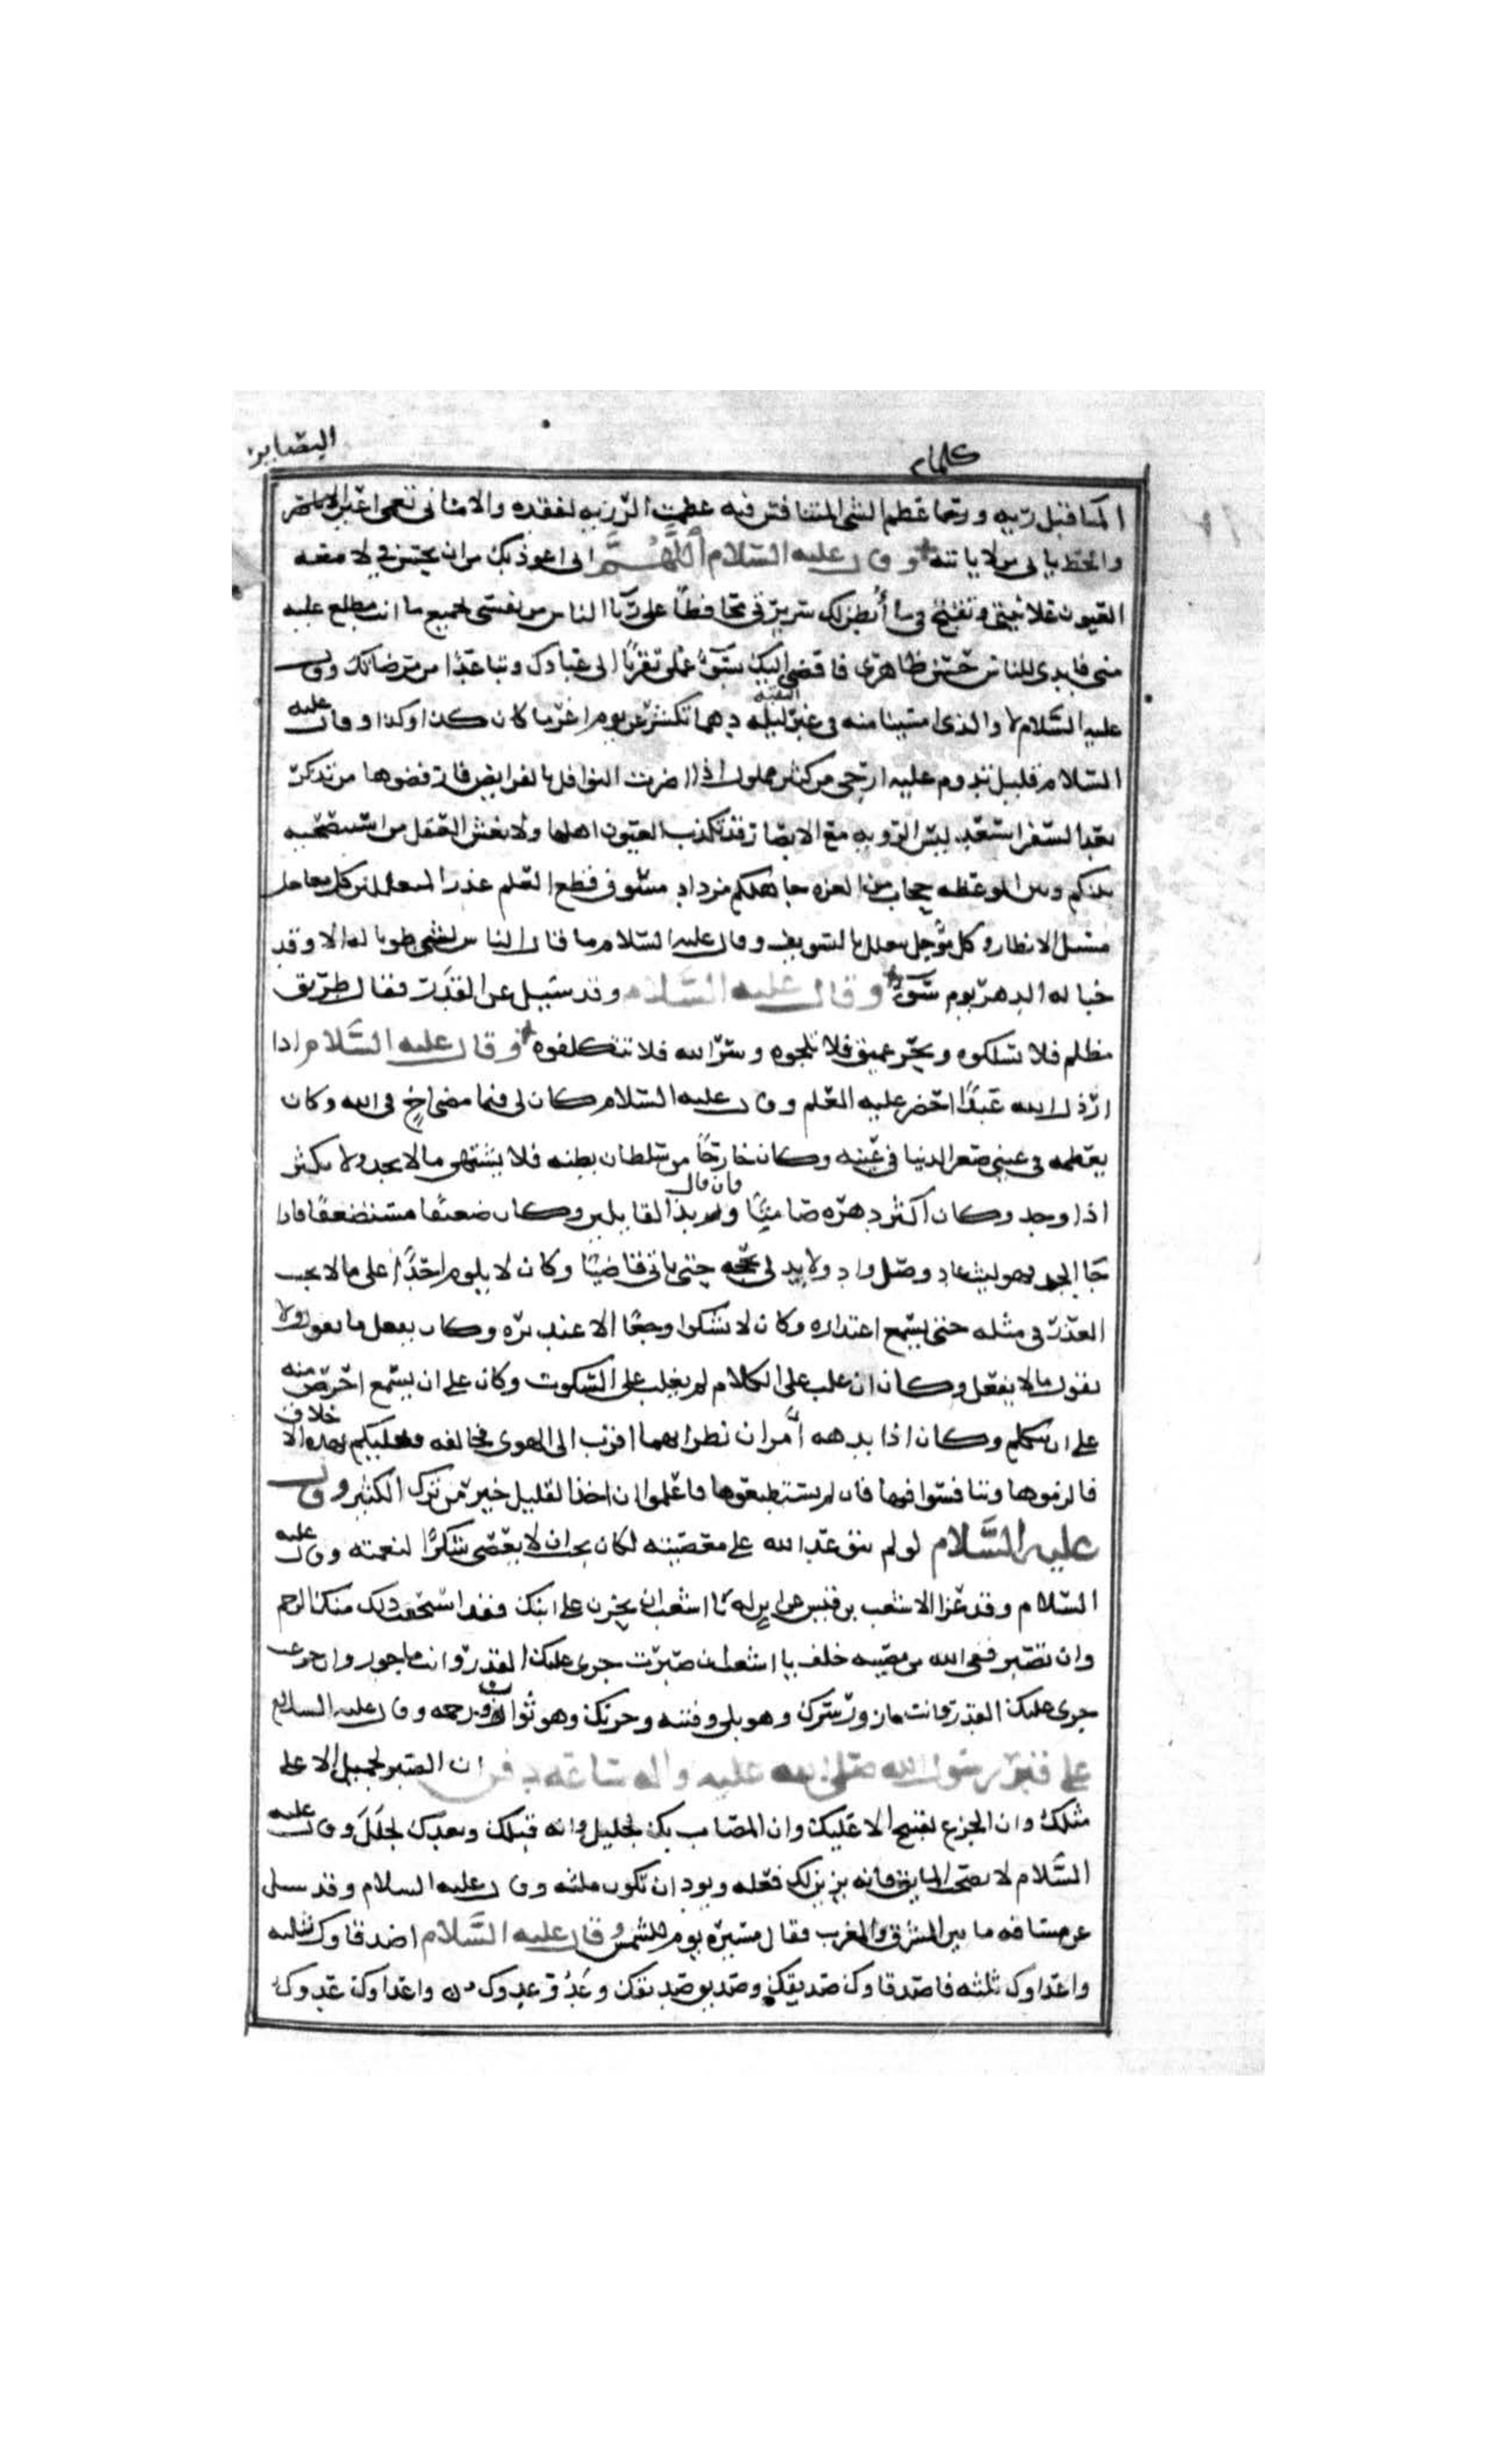 كلمات
البصاير
المنافس فيه عظمت الرزيه لفقده والاماني تعمي اعين البصاير
والحظ ياتي من لا ياتيه وقال عليه السلام اللهم اني اعوذ بك من ان يحسن في لامعه
العيون علانيتي وتقبح فيما ابطن لك سريرتي محافظا على ريا الناس من نفسي بجميع ما انت مطلع عليه
مني فابدي للناس حسن ظاهري وافضي اليك بسوء عملي تقربا الى عبادك وتباعدا من مرضاتك وقال
عليه السلام لا والذي امسينا منه في غبر ليله دهما تكشر عن يوم اغر ما كان كذا وكذا وقال عليه
السلام قليل تدوم عليه ارجى من كثير مملول اذا اضرت النوافل بالفرايض فارفضوها من تذكر
بعد السفر استعد ليس الرويه مع الابصار فقد تكذب العيون اهلها ولا يغش العقل من استنصحه
بينكم وبين الموعظه حجاب من الغره جاهلكم مزداد مسوف قطع العلم عذر المتعللين كل معاجل
يسئل الانظار وكل مؤجل يتعلل بالتسويف وقال عليه السلام ما قال الناس لشي طوبا له الا وقد
خبا له الدهر يوم سوء وقال عليه السلام وقد سئل عن القدر فقال طريق
مظلم فلا تسلكوه وبحر عميق فلا تلجوه وسر الله فلا تتكلفوه وقال عليه السلام اذا
ارذل الله عبدا احضر عليه العلم وقال عليه السلام كان لي فيما مضى اخ في الله وكان
يعظمه في عيني صغر الدنيا في عينه وكان خارجا من سلطان بطنه فلا يشتهي ما لا يجد ولا يكثر
اذا وجد وكان اكثر دهره صامتا فان قال بذ القايلين وكان ضعيفا مستضعفا فاذا
جا الجد فهو ليث عاد وصل واد ولا يدلي بحجه حتى ياتي قاضيا وكان لا يلوم احدا على ما لا يجب
العذر في مثله حتى يسمع اعتذاره وكان لا يشكوا وجعا الا عند بره وكان يفعل ما يقول ولا
يقول ما لا يفعل وكان ان غلب على الكلام لم يغلب على السكوت وكان على ان يسمع احرص منه
على ان يتكلم وكان اذا بدهه امران نظر ايهما اقرب الى الهوى فخالفه فعليكم بهذه الاخلاق
فالزموها وتنافسوا فيها فان لم تستطيعوها فاعلموا ان اخذ القليل خير من ترك الكثير وقال
عليه السلام لو لم يتوعد الله على معصيته لكان يجب ان لا يعصى شكرا لنعمته وقال عليه
السلام وقد عزا الاشعث بن قيس عن ابن له يا اشعث ان تحزن على ابنك فقد استحقت ذلك منك الرحم
وان تصبر ففي الله من مصيبه خلف يا اشعث ان صبرت جرى عليك القدر وانت ماجور وان جزعت
جرى عليك القدر وانت مازور سرك وهو بلى وفتنه وحزنك وهو ثواب ورحمه وقال عليه السلام
على قبر رسول الله صلى الله عليه واله ساعه دفن ان الصبر لجميل الا على
مثلك وان الجزع لقبيح الا عليك وان المصاب بك لجليل وانه قبلك وبعدك لجلل وقال عليه
السلام لا تصحب المايق فانه يزين لك فعله ويود ان تكون مثله وقال عليه السلام وقد سئل
عن مسافه ما بين المشرق والمغرب فقال مسيره يوم للشمس وقال عليه السلام اصدقاوك ثلثه
واعداوك ثلثه فاصدقاوك صديقك وصديق صديقك وعدو عدوك واعداوك عدوك